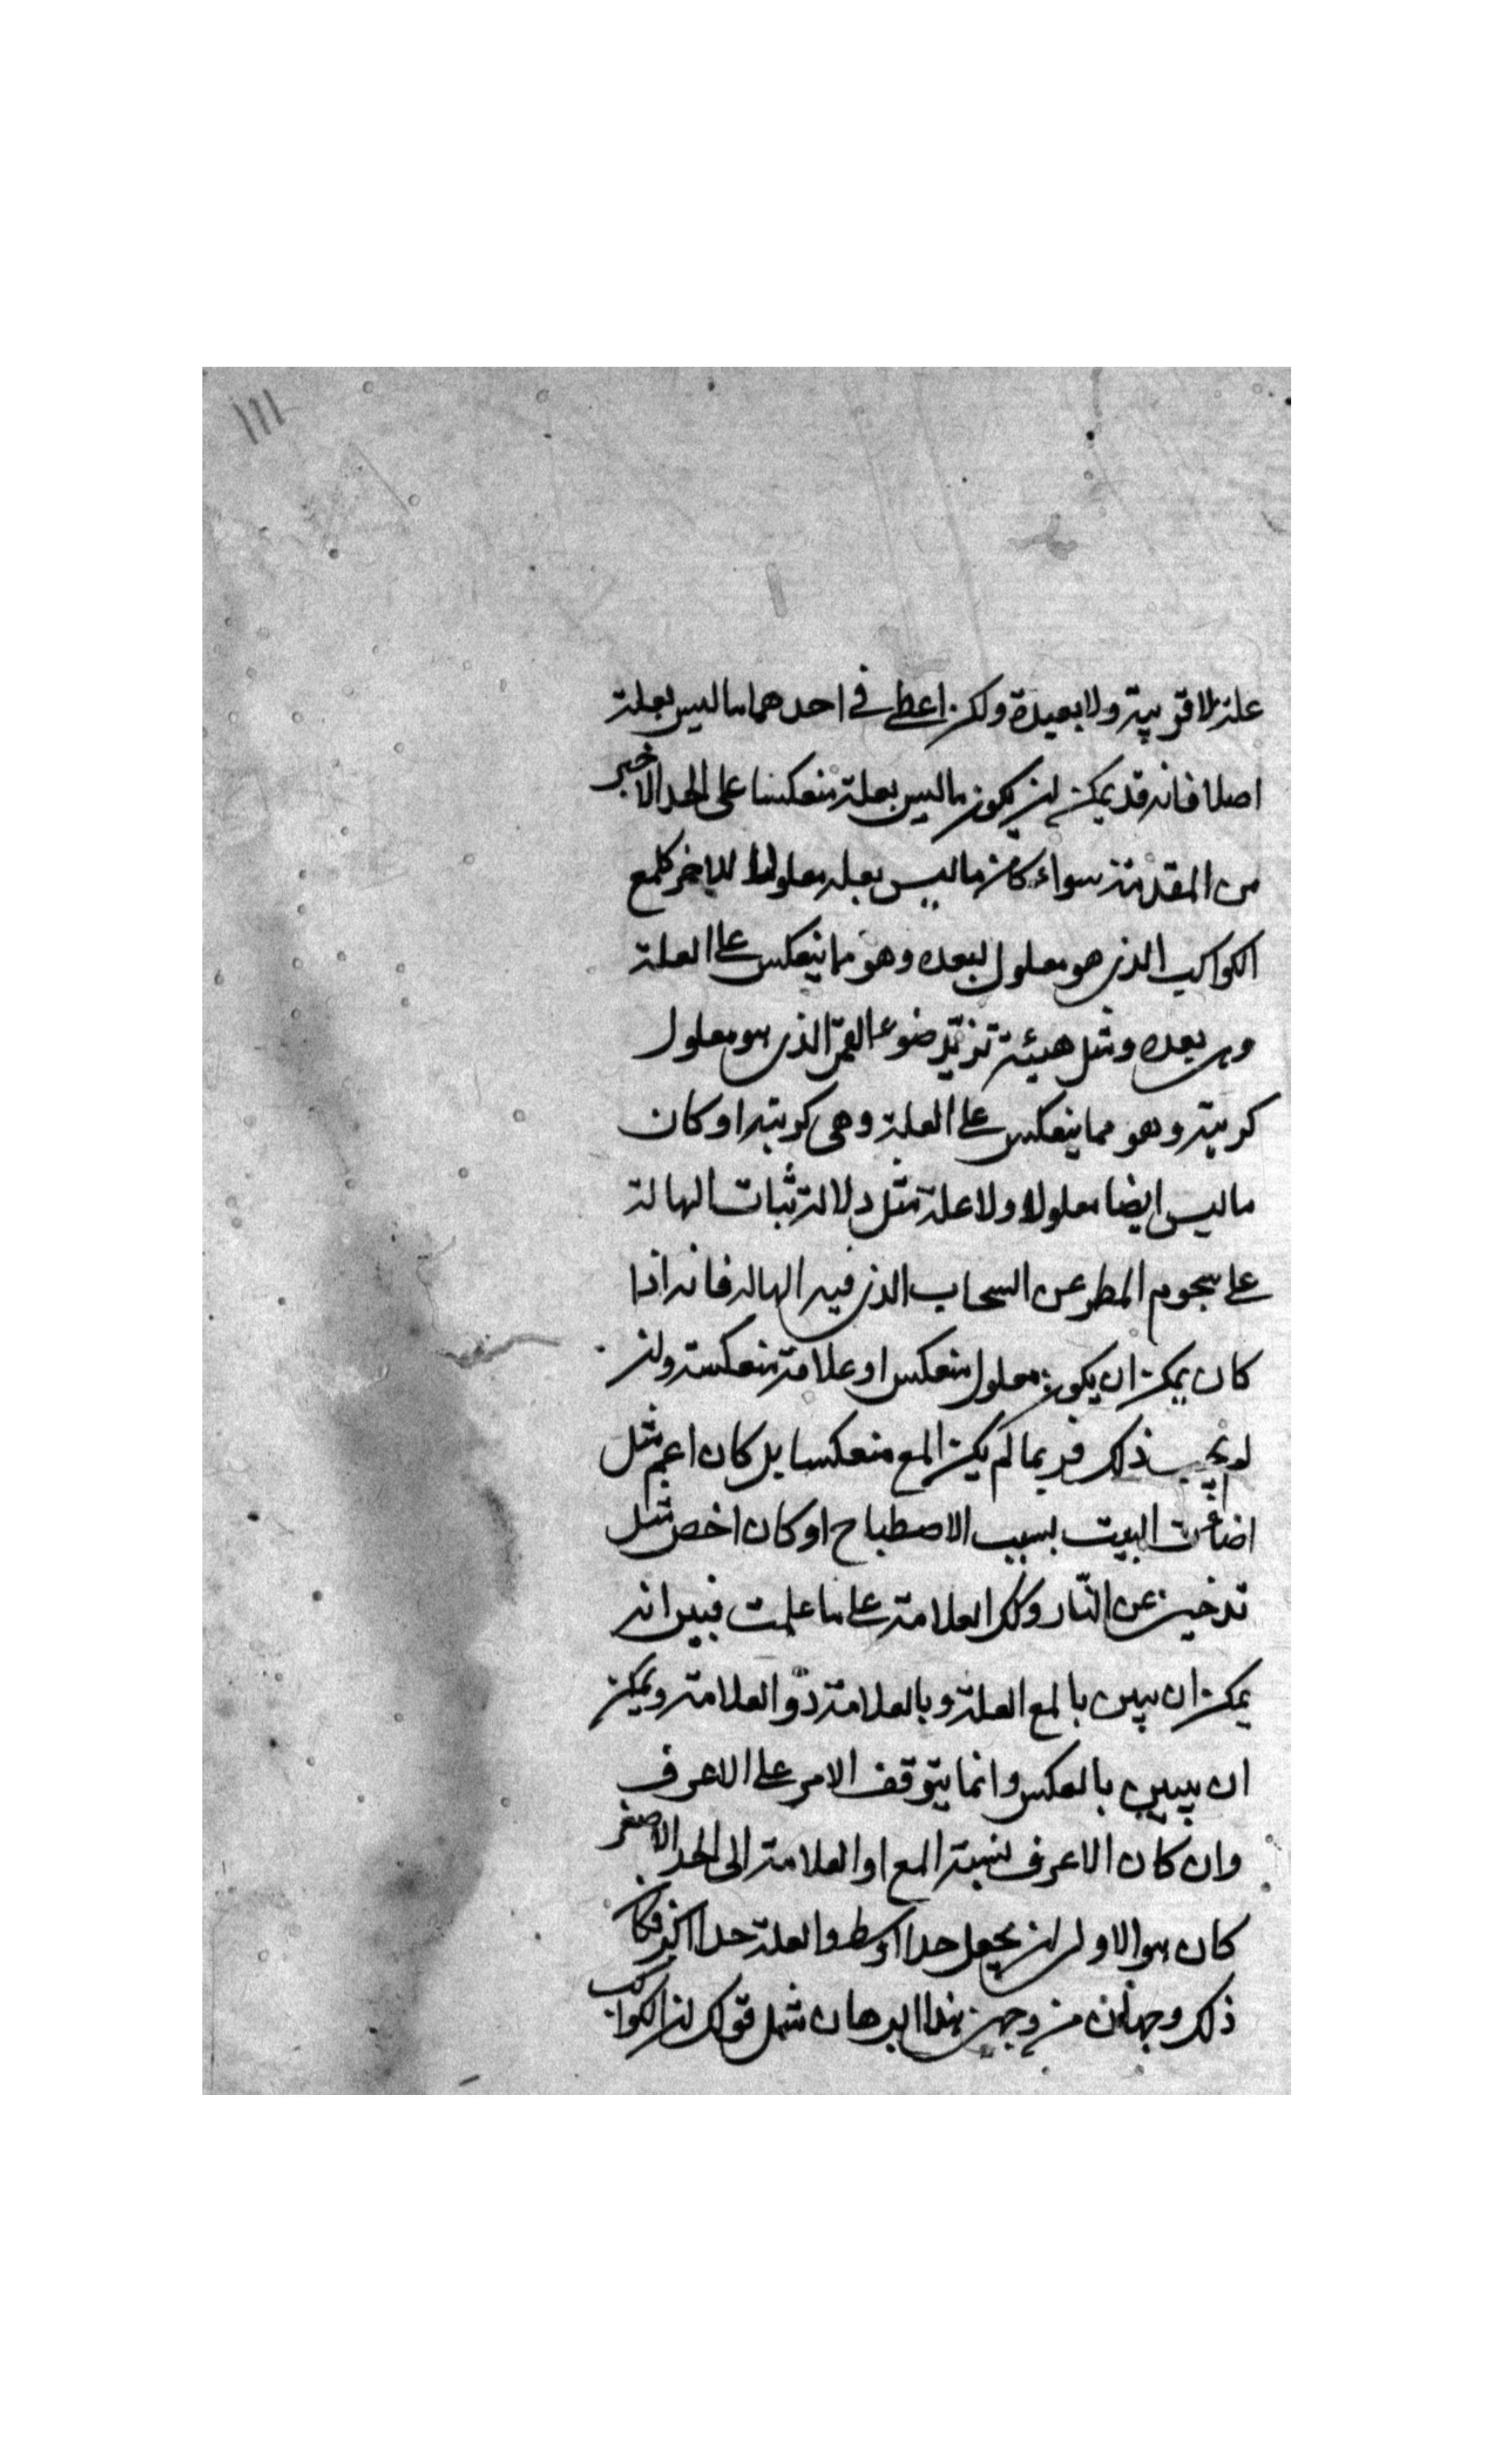 ١١١
علة لا قريبة ولا بعيدة ولكن اعطى فى احدهما ما ليس بعلة
اصلا فانه قد يمكن ان يكون ما ليس بعلة منعكسا على الحد الاخير
من المقدمة سواء كان ما ليس بعلة معلولا للاخر كلمع
الكواكب الذى هو معلول لبعده وهو مما ينعكس على العلة
وهى بعده ومثل هيئة تزيّد ضوء القمر الذى هو معلول
كريته وهو مما ينعكس على العلة وهى كريته او كان
ما ليس ايضا معلولا ولا علة مثل دلالة ثبات الهالة
على سجوم المطر عن السحاب الذى فيه الهالة فانه اذا
كان يمكن ان يكون معلول منعكس او علامة منعكسة وان
لم يجب ذلك فربما لم يكن اللمع منعكسا بل كان اعم مثل
البيت بسبب الاصطباح او كان اخص مثل
تدخين عن النّار وكذلك العلامة على ما علمت فبين انه
يمكن ان يبين بالمع العلة وبالعلامة ذو العلامة ويمكن
ان يبين بالعكس وانما يتوقف الامر على الاعرف
وان كان الاعرف نسبة المع او العلامة الى الحد الاصغر
كان هو الاولى ان يجعل حدا اوسط والعلة حدا اكبر فكان
ذلك وجها من وجهى هذا البرهان مثل قولك ان الكواكب